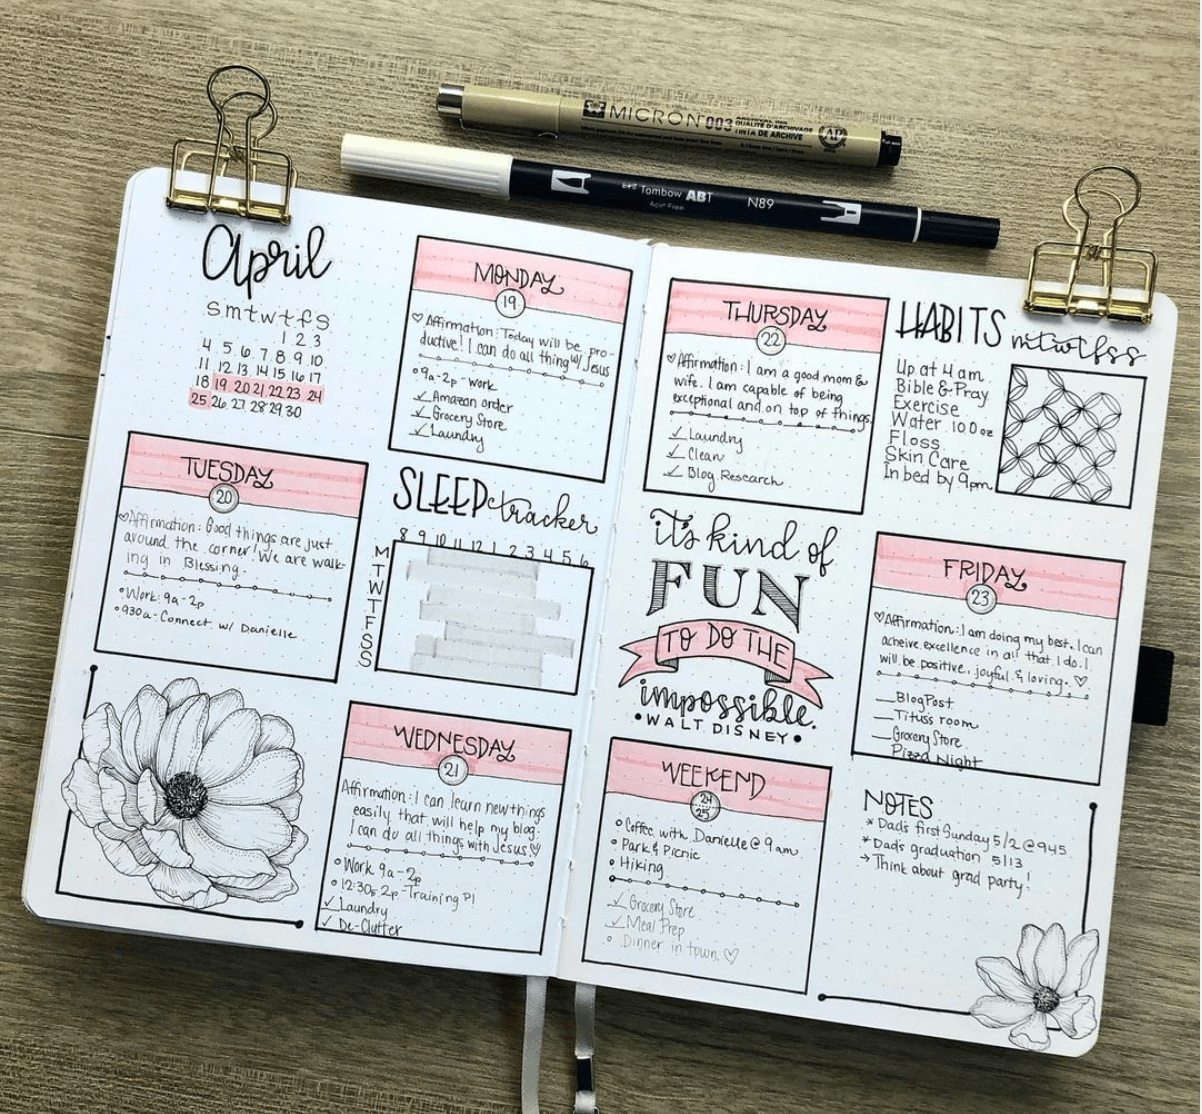 MICRON 003 ARCHIVAL INK
QUALITÉ D'ARCHIVAGE
TINTA DE ARCHIVE
AP
Tombow ABT N89
Acid Free
April
S m t w t f S
1 2 3
4 5 6 7 8 9 10
11 12 13 14 15 16 17
18 19 20 21 22 23 24
25 26 27 28 29 30
MONDAY
19
♡ Affirmation: Today will be pro-
ductive! I can do all thing w/ Jesus
• 9a-2p - work
✓ Amazon order
✓ Grocery Store
✓ Laundry
TUESDAY
20
♡ Affirmation: Good things are just
around the corner! We are walk-
ing in Blessing.
• Work: 9a-2p
• 930a - Connect w/ Danielle
SLEEP tracker
8 9 10 11 12 1 2 3 4 5 6
M
T
W
T
F
S
S
WEDNESDAY
21
Affirmation: I can learn new things
easily that will help my blog.
I can do all things with Jesus ♡
• Work 9a-2p
• 12:30-2p - Training P1
✓ Laundry
✓ De-Clutter
THURSDAY
22
♡ Affirmation: I am a good mom &
wife. I am capable of being
exceptional and on top of things.
✓ Laundry
✓ Clean
✓ Blog Research
HABITS m t w t f s s
Up at 4 am
Bible & Pray
Exercise
Water 100 oz
Floss
Skin Care
In bed by 9pm
it's kind of
FUN
TO DO THE
impossible.
• WALT DISNEY •
FRIDAY
23
♡ Affirmation: I am doing my best. I can
acheive excellence in all that I do. I
will be positive, joyful & loving. ♡
_ Blog Post
_ Titus's room
_ Grocery Store
Pizza Night
WEEKEND
24
25
• Coffee with Danielle @ 9 am
• Park & Picnic
• Hiking
✓ Grocery Store
✓ Meal Prep
• Dinner in town ♡
NOTES
* Dad's first Sunday 5/2 @ 945
* Dad's graduation 5/13
→ Think about grad party!